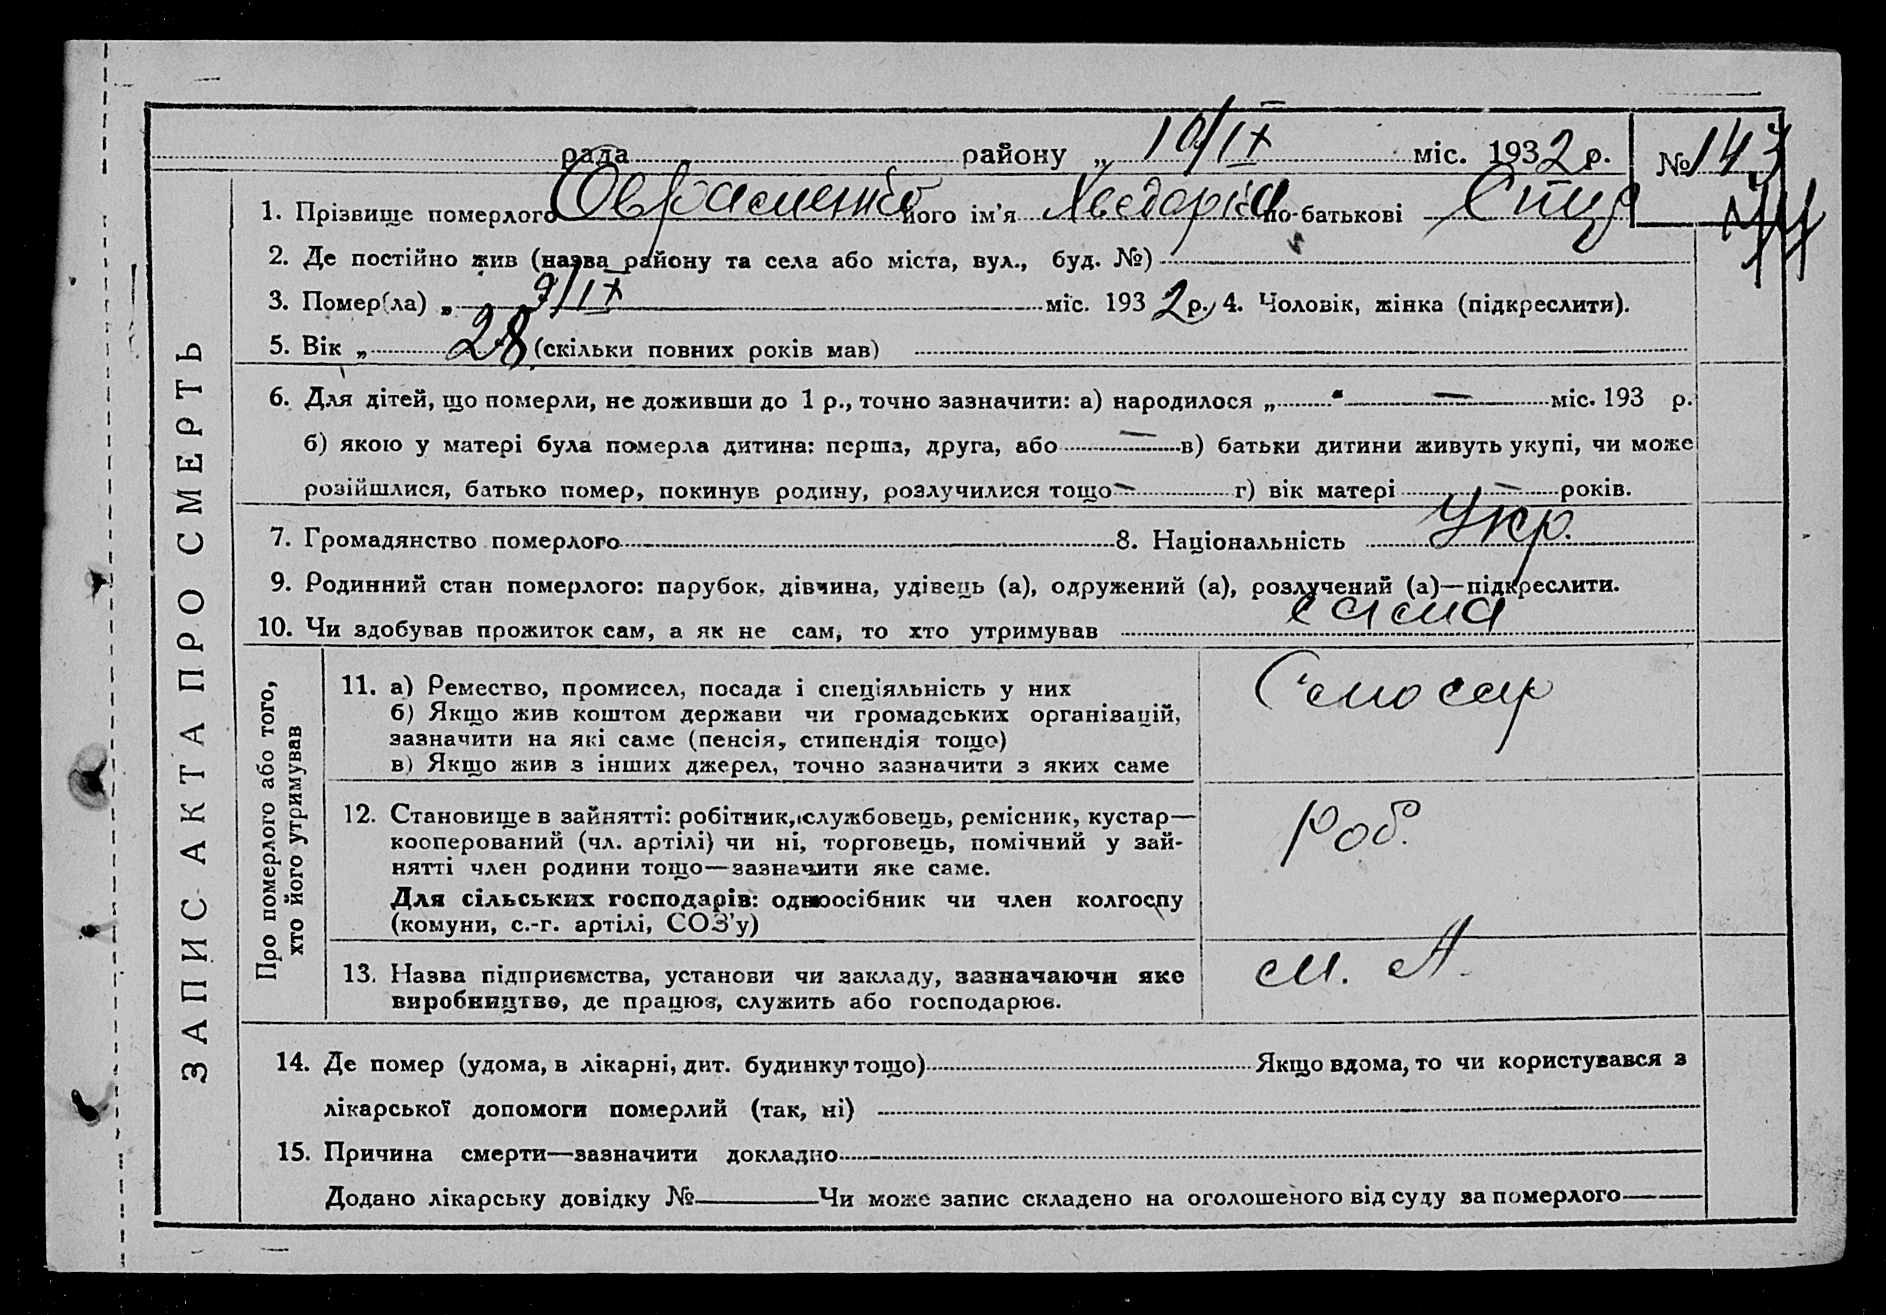 ЗАПИС АКТА ПРО СМЕРТЬ
рада району „ 10/IX міс. 1932 р. № 143
1. Прізвище померлого його ім'я по-батькові
2. Де постійно жив (назва району та села або міста, вул., буд. №)
3. Помер(ла) „ 9/IX міс. 1932 р. 4. Чоловік, жінка (підкреслити).
5. Вік „ 28 (скільки повних років мав)
6. Для дітей, що померли, не доживши до 1 р., точно зазначити: а) народилося „ — міс. 193 р.
б) якою у матері була померла дитина: перша, друга, або — в) батьки дитини живуть укупі, чи може
розійшлися, батько помер, покинув родину, розлучилися тощо — г) вік матері — років.
7. Громадянство померлого 8. Національність Укр.
9. Родинний стан померлого: парубок, дівчина, удівець (а), одружений (а), розлучений (а)—підкреслити.
10. Чи здобував прожиток сам, а як не сам, то хто утримував сама
Про померлого або того,
хто його утримував
11. а) Ремество, промисел, посада і спеціяльність у них
б) Якщо жив коштом держави чи громадських організацій,
зазначити на які саме (пенсія, стипендія тощо)
в) Якщо жив з інших джерел, точно зазначити з яких саме
12. Становище в зайнятті: робітник, службовець, ремісник, кустар—
кооперований (чл. артілі) чи ні, торговець, помічний у зай-
нятті член родини тощо—зазначити яке саме.
Для сільських господарів: одноосібник чи член колгоспу
(комуни, с.-г. артілі, СОЗ'у)
Роб.
13. Назва підприємства, установи чи закладу, зазначаючи яке
виробництво, де працює, служить або господарює.
М. А.
14. Де помер (удома, в лікарні, дит. будинку тощо) Якщо вдома, то чи користувався з
лікарської допомоги померлий (так, ні)
15. Причина смерти—зазначити докладно
Додано лікарську довідку № Чи може запис складено на оголошеного від суду за померлого